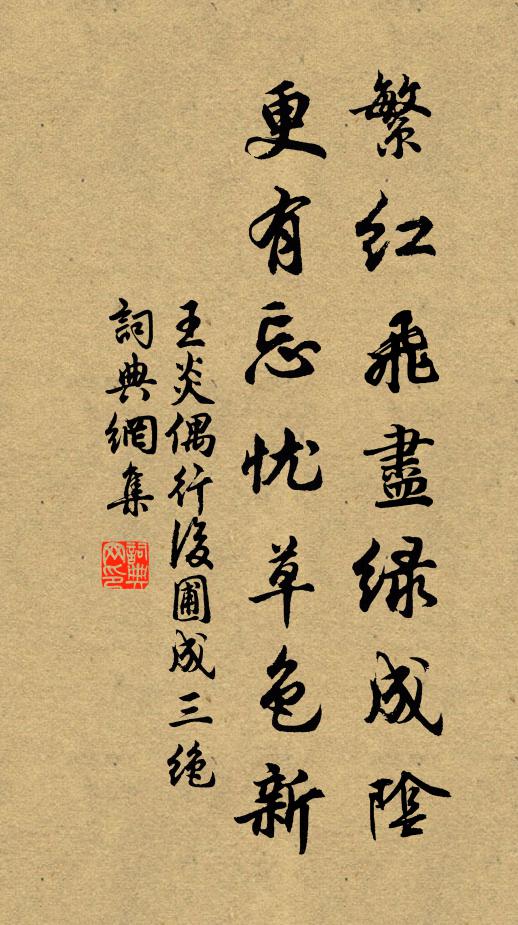 繁红飛盡绿成陰
更有忘忧草色新
王炎偶行後圃成三绝
詞典網集
詞典網印